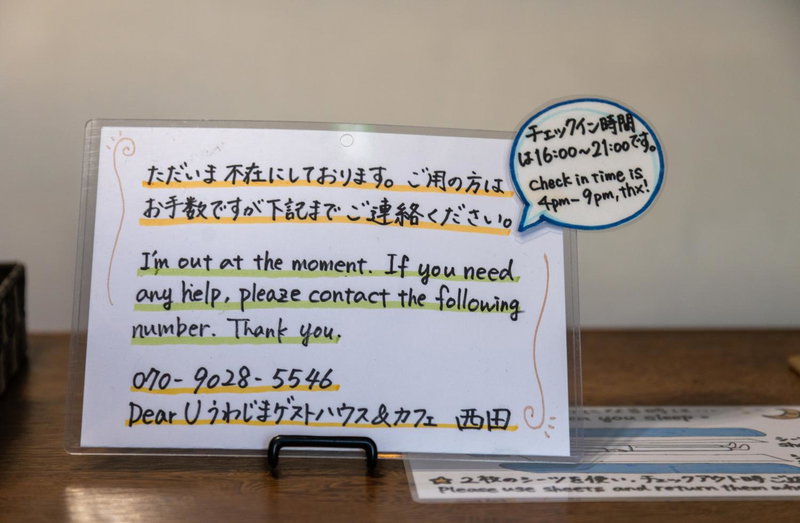 ただいま不在にしております。ご用の方は
お手数ですが下記までご連絡ください。
I'm out at the moment. If you need
any help, please contact the following
number. Thank you.
070-9028-5546
Dear U うわじまゲストハウス&カフェ 西田
チェックイン時間
は16:00~21:00です。
check in time is
4pm-9pm, thx!
you sleep
☆2枚のシーツを使い、チェックアウト時
Please use sheets and return them